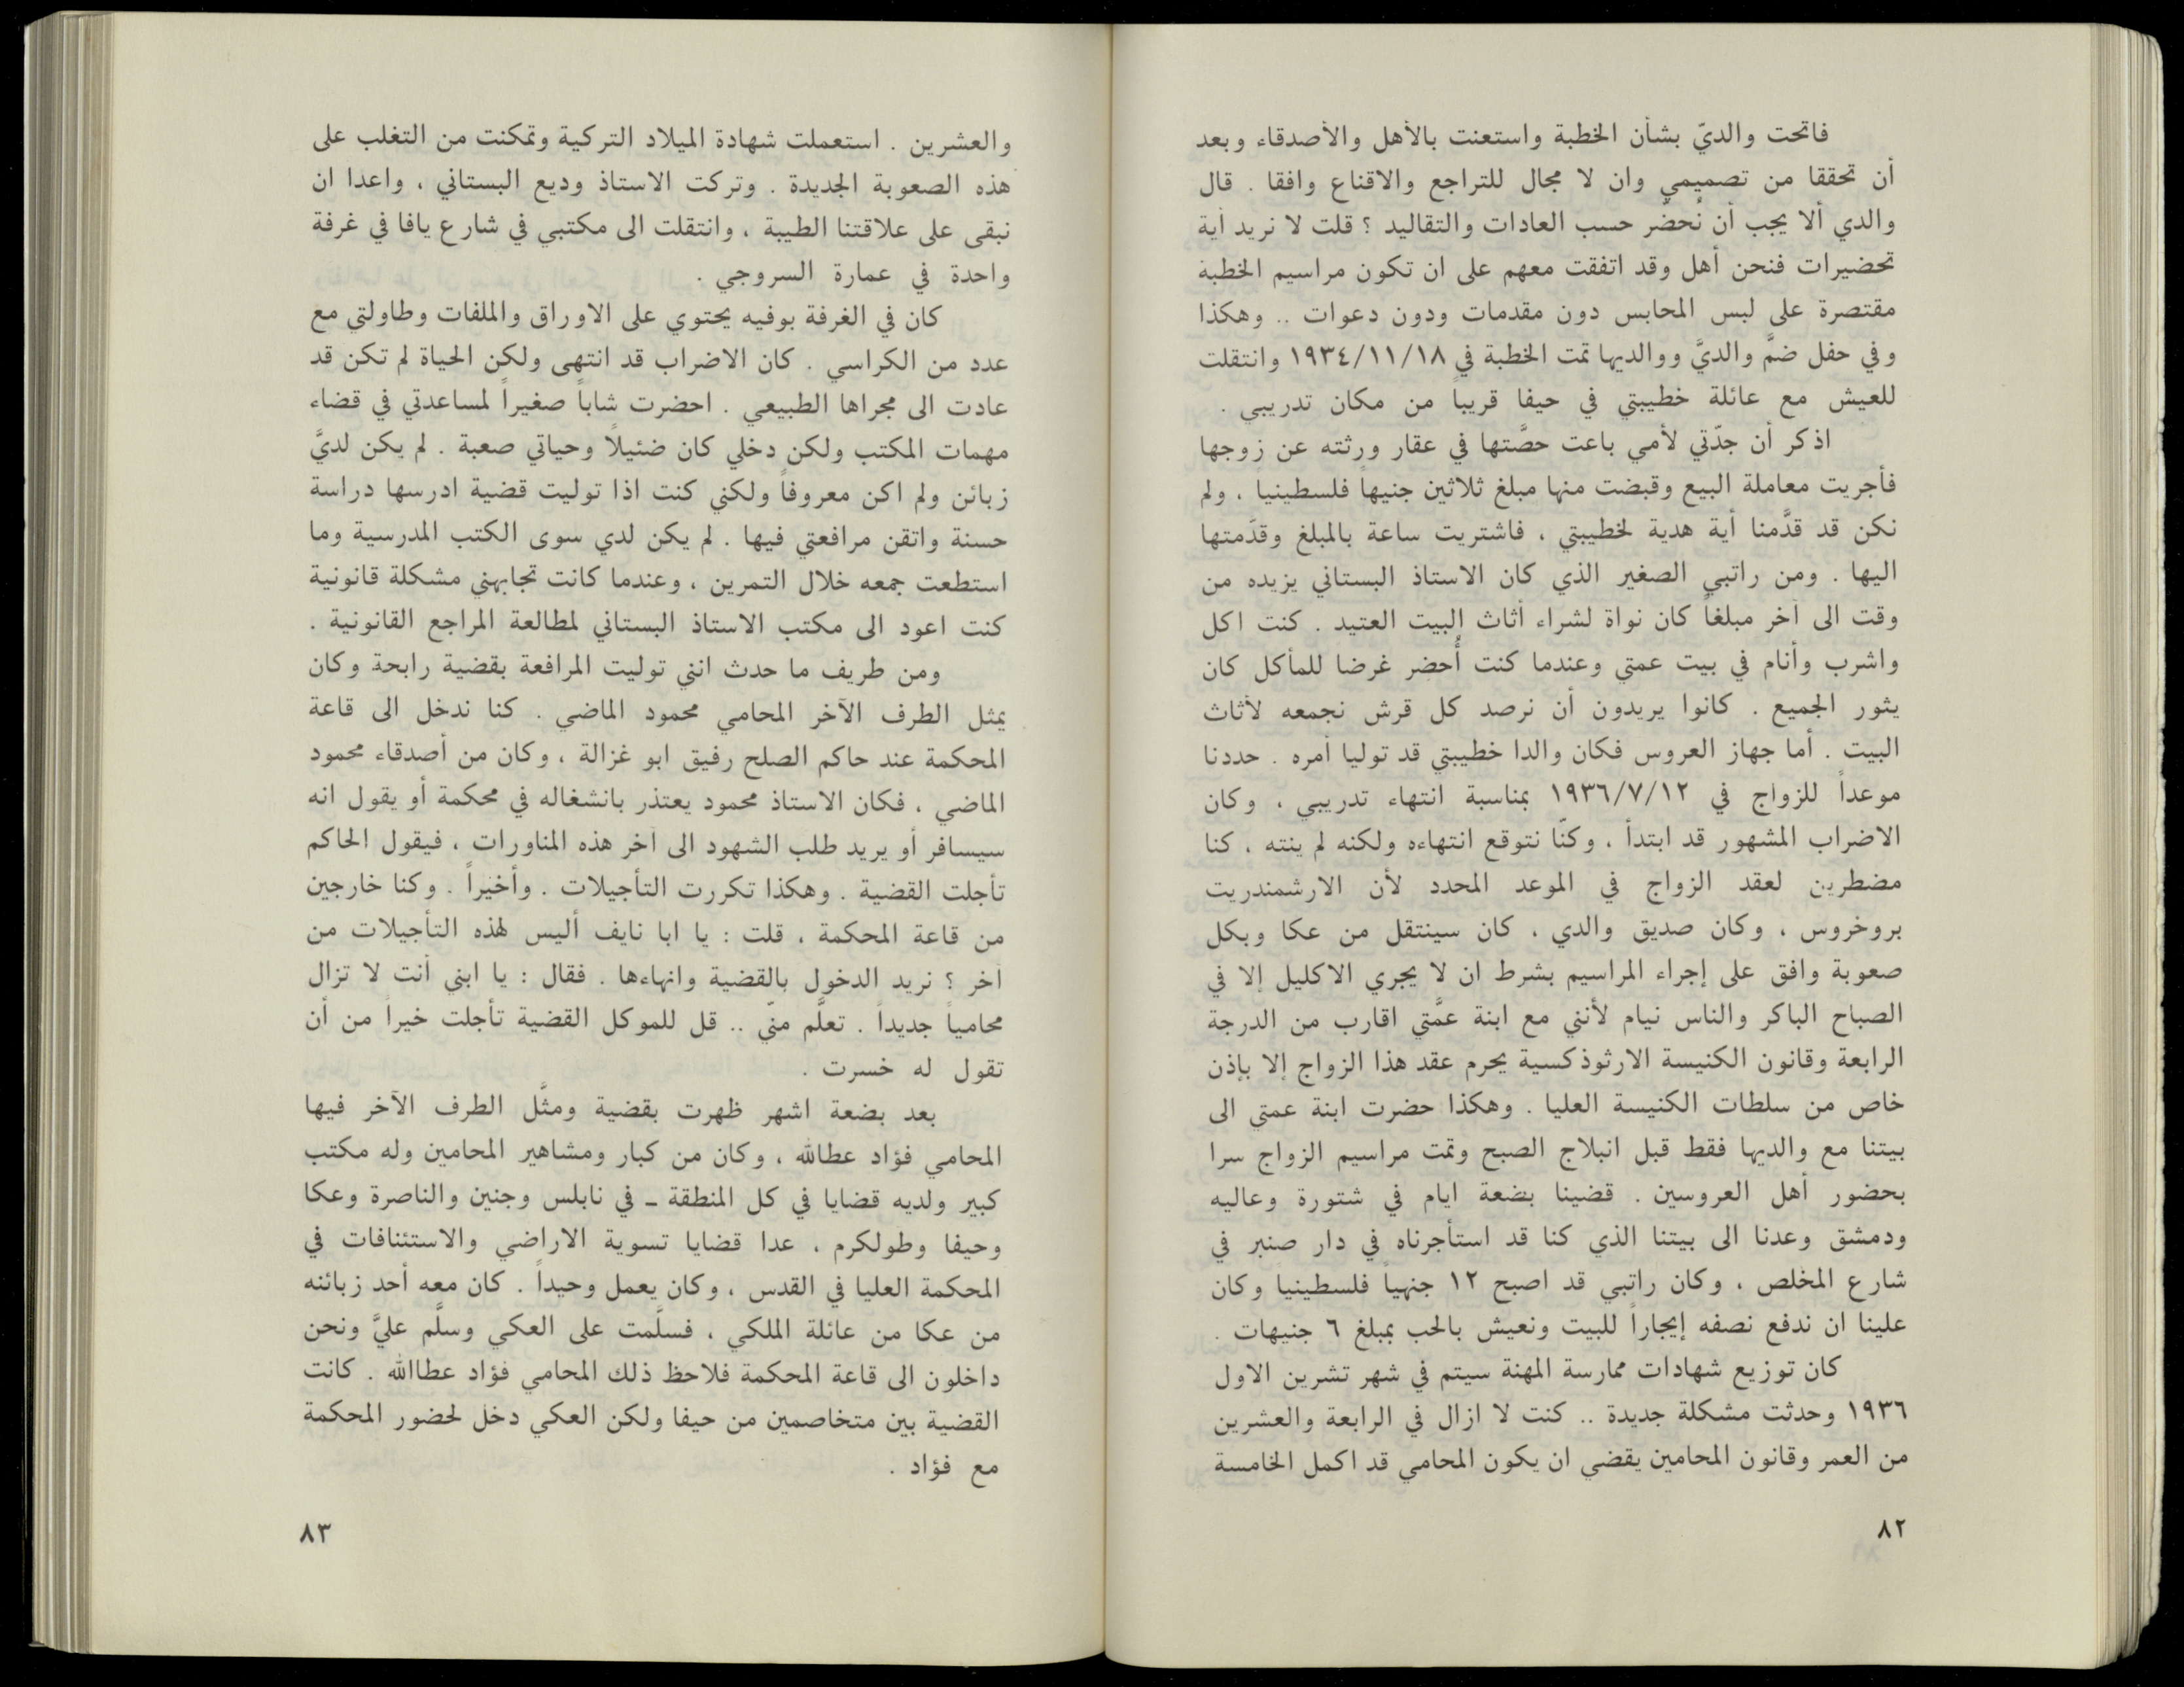 فاتحت والديّ بشأن الخطبة واستعنت بالأهل والأصدقاء وبعد
أن تحققا من تصميمي وان لا مجال للتراجع والاقناع وافقا . قال
والدي ألا يجب أن نُحضّر حسب العادات والتقاليد ؟ قلت لا نريد أية
تحضيرات فنحن أهل وقد اتفقت معهم على ان تكون مراسيم الخطبة
مقتصرة على لبس المحابس دون مقدمات ودون دعوات .. وهكذا
وفي حفل ضمَّ والديَّ ووالديها تمت الخطبة في ١٩٣٤/١١/١٨ وانتقلت
للعيش مع عائلة خطيبتي في حيفا قريباً من مكان تدريبي .
اذكر أن جدّتي لأمي باعت حصَّتها في عقار ورثته عن زوجها
فأجريت معاملة البيع وقبضت منها مبلغ ثلاثين جنيهاً فلسطينيا ، ولم
نكن قد قدَّمنا أية هدية لخطيبتي ، فاشتريت ساعة بالمبلغ وقدَمتها
اليها . ومن راتبي الصغير الذي كان الاستاذ البستاني يزيده من
وقت الى آخر مبلغاً كان نواة لشراء أثاث البيت العتيد . كنت اكل
واشرب وأنام في بيت عمتي وعندما كنت أُحضر غرضا للمأكل كان
يثور الجميع . كانوا يريدون أن نرصد كل قرش نجمعه لأثاث
البيت . أما جهاز العروس فكان والدا خطيبتي قد توليا أمره . حددنا
موعداً للزواج في ١٩٣٦/٧/١٢ بمناسبة انتهاء تدريبي ، وكان
الاضراب المشهور قد ابتدأ ، وكنّا نتوقع انتهاءه ولكنه لم ينته ، كنا
مضطرين لعقد الزواج في الموعد المحدد لأن الارشمندريت
بروخروس ، وكان صديق والدي ، كان سينتقل من عكا وبكل
صعوبة وافق على إجراء المراسيم بشرط ان لا يجري الاكليل إلا في
الصباح الباكر والناس نيام لأنني مع ابنة عمَّتي اقارب من الدرجة
الرابعة وقانون الكنيسة الارثوذكسية يحرم عقد هذا الزواج إلا بإذن
خاص من سلطات الكنيسة العليا . وهكذا حضرت ابنة عمتي الى
بيتنا مع والديها فقط قبل انبلاج الصبح وتمت مراسيم الزواج سرا
بحضور أهل العروسين . قضينا بضعة ايام في شتورة وعاليه
ودمشق وعدنا الى بيتنا الذي كنا قد استأجرناه في دار صنبر في
شارع المخلص ، وكان راتبي قد اصبح ١٢ جنهياً فلسطينياً وكان
علينا ان ندفع نصفه إيجاراً للبيت ونعيش بالحب بمبلغ ٦ جنيهات .
كان توزيع شهادات ممارسة المهنة سيتم في شهر تشرين الاول
١٩٣٦ وحدثت مشكلة جديدة .. كنت لا ازال في الرابعة والعشرين
من العمر وقانون المحامين يقضي ان يكون المحامي قد اكمل الخامسة
٨٢
والعشرين . استعملت شهادة الميلاد التركية وتمكنت من التغلب على
هذه الصعوبة الجديدة . وتركت الاستاذ وديع البستاني ، واعدا ان
نبقى على علاقتنا الطيبة ، وانتقلت الى مكتبي في شارع يافا في غرفة
واحدة في عمارة السروجي .
كان في الغرفة بوفيه يحتوي على الاوراق والملفات وطاولتي مع
عدد من الكراسي . كان الاضراب قد انتهى ولكن الحياة لم تكن قد
عادت الى مجراها الطبيعي . احضرت شاباً صغيراً لمساعدتي في قضاء
مهمات المكتب ولكن دخلي كان ضئيلاً وحياتي صعبة . لم يكن لديَّ
زبائن ولم اكن معروفاً ولكني كنت اذا توليت قضية ادرسها دراسة
حسنة واتقن مرافعتي فيها . لم يكن لدي سوى الكتب المدرسية وما
استطعت جمعه خلال التمرين ، وعندما كانت تجابهني مشكلة قانونية
كنت اعود الى مكتب الاستاذ البستاني لمطالعة المراجع القانونية .
ومن طريف ما حدث انني توليت المرافعة بقضية رابحة وكان
يمثل الطرف الآخر المحامي محمود الماضي . كنا ندخل الى قاعة
المحكمة عند حاكم الصلح رفيق ابو غزالة ، وكان من أصدقاء محمود
الماضي ، فكان الاستاذ محمود يعتذر بانشغاله في محكمة أو يقول انه
سيسافر أو يريد طلب الشهود الى آخر هذه المناورات ، فيقول الحاكم
تأجلت القضية . وهكذا تكررت التأجيلات . وأخيراً . وكنا خارجين
من قاعة المحكمة ، قلت : يا ابا نايف أليس لهذه التأجيلات من
آخر ؟ نريد الدخول بالقضية وانهاءها . فقال : يا ابني أنت لا تزال
محامياً جديداً . تعلَّم منّي .. قل للموكل القضية تأجلت خيراً من أن
تقول له خسرت .
بعد بضعة اشهر ظهرت بقضية ومثَّل الطرف الآخر فيها
المحامي فؤاد عطالله ، وكان من كبار ومشاهير المحامين وله مكتب
كبير ولديه قضايا في كل المنطقة ـ في نابلس وجنين والناصرة وعكا
وحيفا وطولكرم ، عدا قضايا تسوية الاراضي والاستئنافات في
المحكمة العليا في القدس ، وكان يعمل وحيداً . كان معه أحد زبائنه
من عكا من عائلة الملكي ، فسلَّمت على العكي وسلَّم عليَّ ونحن
داخلون الى قاعة المحكمة فلاحظ ذلك المحامي فؤاد عطاالله . كانت
القضية بين متخاصمين من حيفا ولكن العكي دخل لحضور المحكمة
مع فؤاد .
٨٣